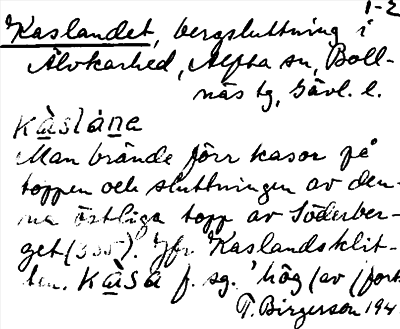 1-2
Kaslandet, bergsluttning i
Älvkarhed, Alfta sn, Boll-
näs tg, Gävl. l.
kàslàne
Man brände förr kasor på
toppen och sluttningen av den-
na östliga topp av Söderber-
get (355). Jfr Kaslandsklit-
ten. kàsa f. sg. 'hög (av
T. Birgerson 194